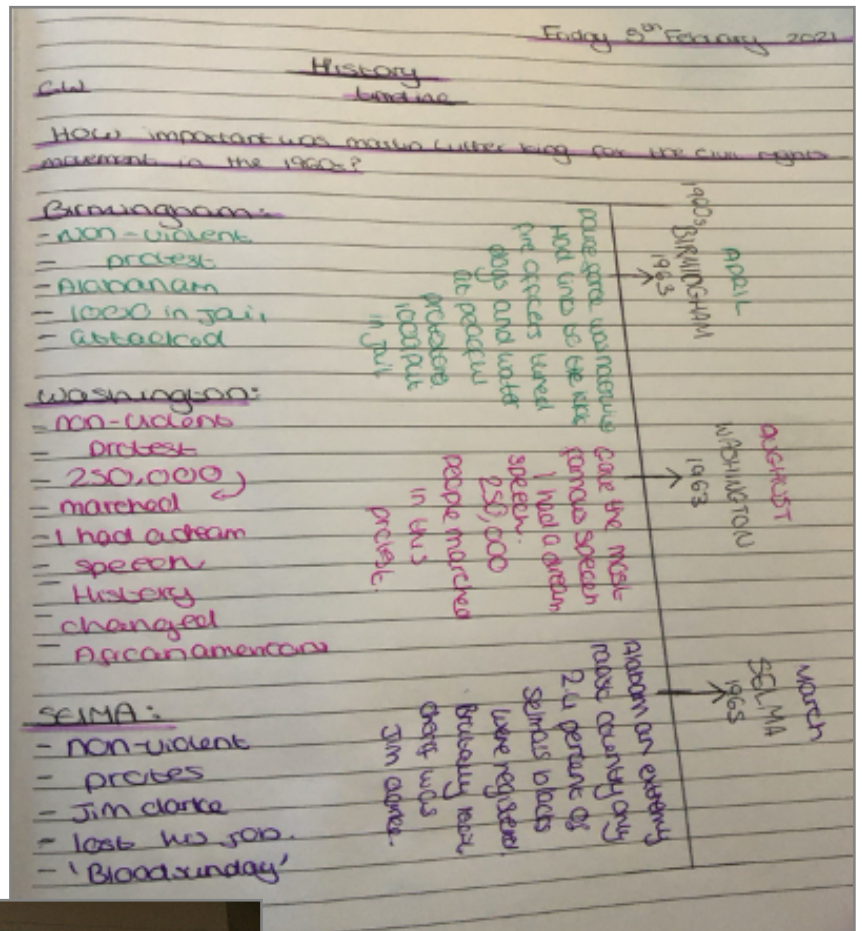 Friday 5th Febuary 2021
History
CW
timeline
How important was martin Luther king for the civil rights
movement in the 1960s?
Birmingham:
- Non-violent
- protest
- Alabanam
- 1000 in jail
- attacked
Washington:
- non-violent
- protest
- 250,000
- marched
- I had a dream
- speech
- History
- changed
- African american
SElMA:
- non-violent
- protes
- Jim clarke
- lost his job.
- 'Bloodsunday'
1960s
APRIL
BIRMINGHAM
1963
police force was
had links to the KKK
fire officers turned
dogs and water
at peaceful
protestors
1000 put
in jail
AUGHUST
WASHINGTON
1963
Gave the most
famous speech
I had a dream
speech.
250,000
people marched
in this
protest.
March
SELMA
1965
Alabam an extremly
racist country only
2.4 percent of
Selma's blacks
were registerd.
Brutally
cheif was
Jim clarke.